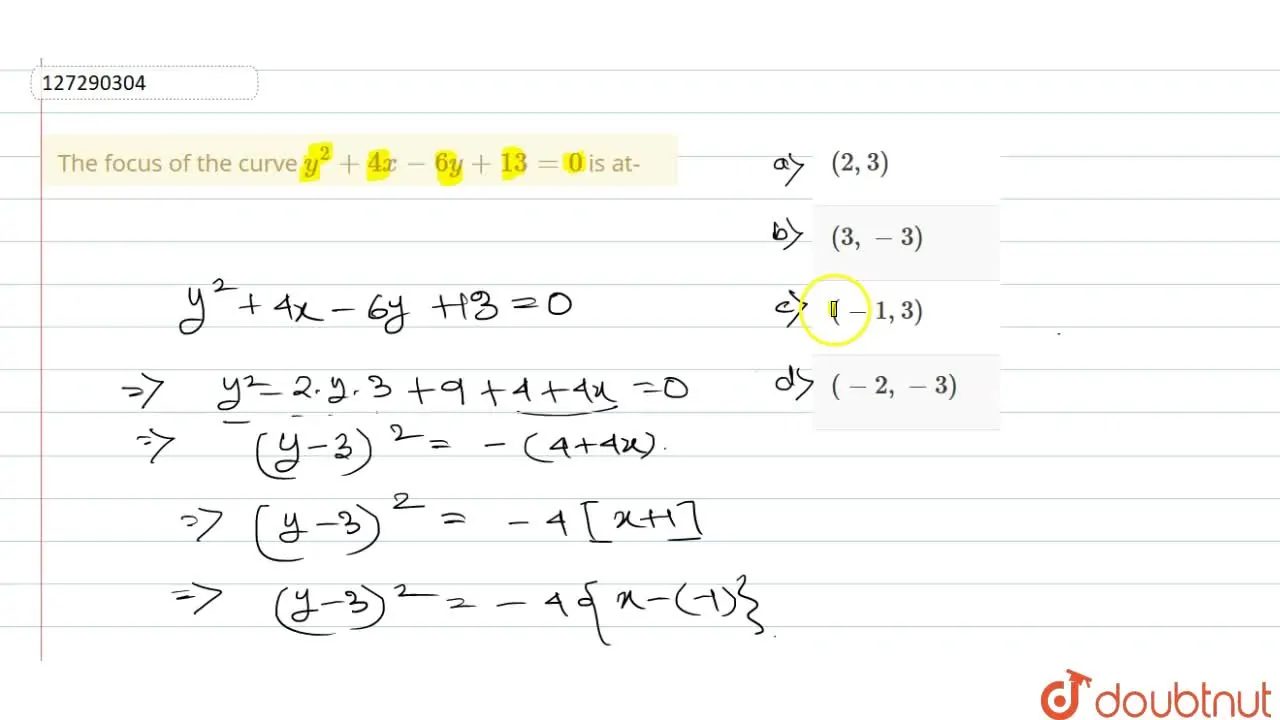 127290304
The focus of the curve y² + 4x − 6y + 13 = 0 is at-
a) (2, 3)
b) (3, − 3)
c) ( − 1, 3)
d) ( − 2, − 3)
y² + 4x − 6y + 13 = 0
⇒ y² − 2.y.3 + 9 + 4 + 4x = 0
⇒ (y − 3)² = − (4 + 4x).
⇒ (y − 3)² = − 4 [x + 1]
⇒ (y − 3)² = − 4 { x − (−1) }
doubtnut